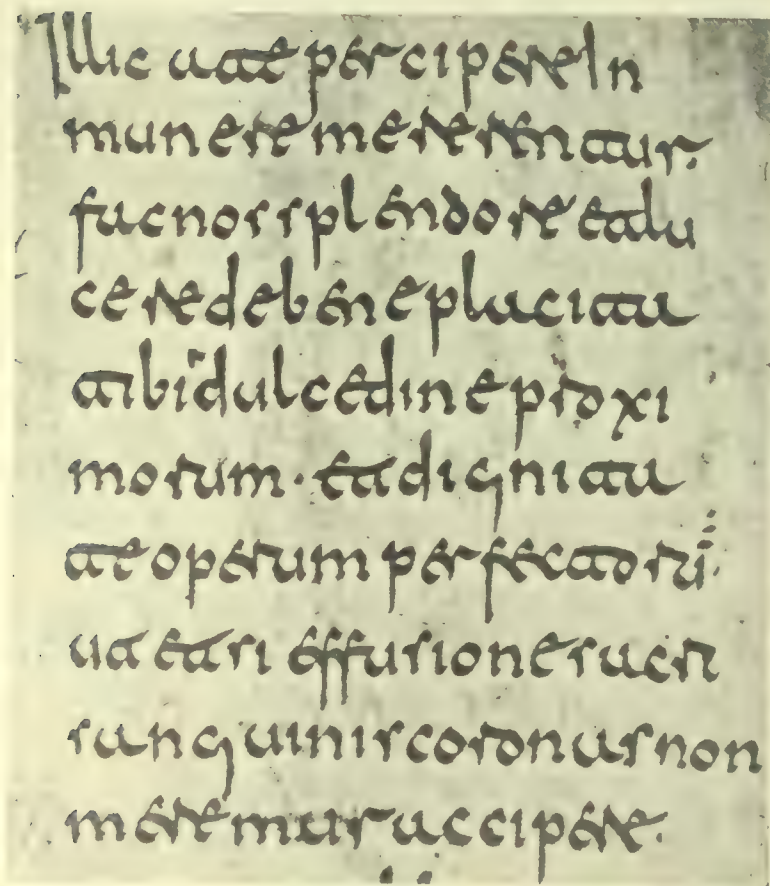 Illic a te percipere In
munere mererentur.
fac nos splendore et lu
cere de bene placita
tibi dulcedine proxi
morum · et digni ta
te operum perfectorū.
ut etsi effusione sacri
sanguinis coronas non
meremur accipere.